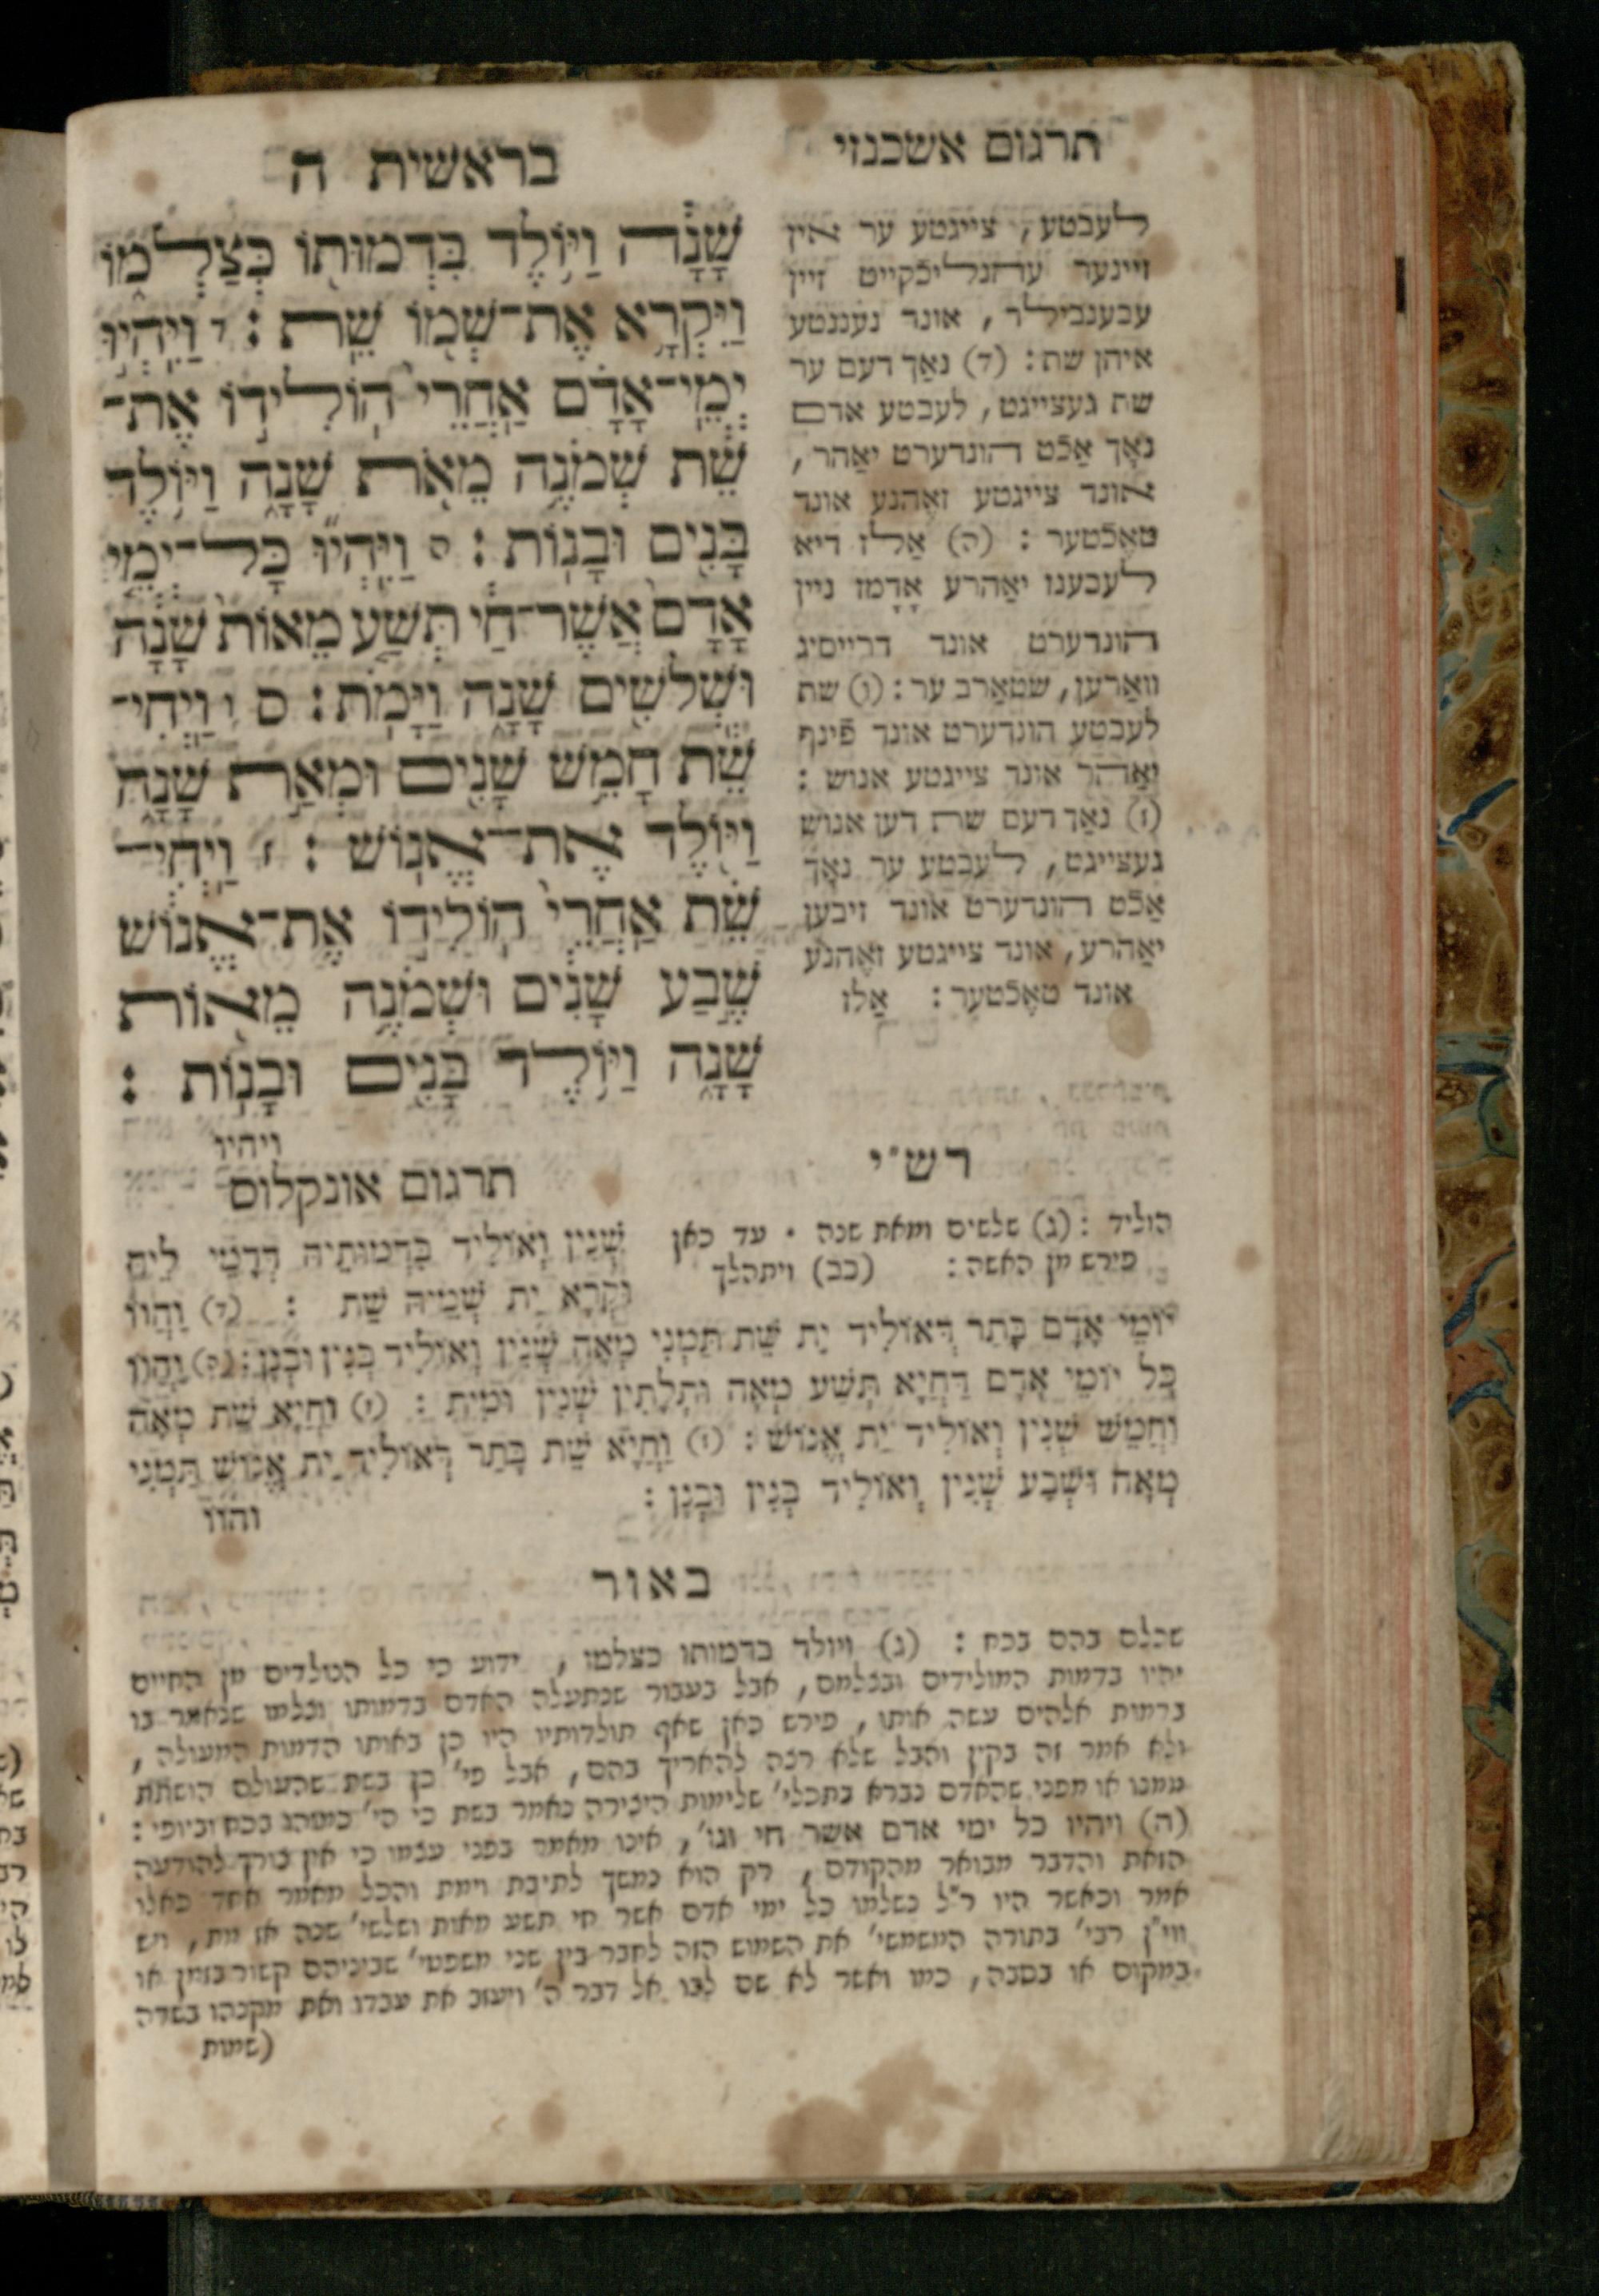 תרגום אשכנזי
בראשית ה
שָׁנָה וַיּוֹלֶד בִּדְמוּתוֹ כְּצַלְמוֹ
וַיִּקְרָא אֶת־שְׁמוֹ שֵׁת : ד וַיִּהְיוּ
יְמֵי־אָדָם אַחֲרֵי הוֹלִידוֹ אֶת־
שֵׁת שְׁמֹנֶה מֵאֹת שָׁנָה וַיּוֹלֶד
בָּנִים וּבָנוֹת : ה וַיִּהְיוּ כָּל־יְמֵי
אָדָם אֲשֶׁר־חַי תְּשַׁע מֵאוֹת שָׁנָה
וּשְׁלֹשִׁים שָׁנָה וַיָּמֹת : ס ו וַיְחִי־
שֵׁת חָמֵשׁ שָׁנִים וּמְאַת שָׁנָה
וַיּוֹלֶד אֶת־אֱנוֹשׁ : ז וַיְחִי־
שֵׁת אַחֲרֵי הוֹלִידוֹ אֶת־אֱנוֹשׁ
שֶׁבַע שָׁנִים וּשְׁמֹנֶה מֵאוֹת
שָׁנָה וַיּוֹלֶד בָּנִים וּבָנוֹת :
ויהיו
לעבטע, צייגטע ער אין
זיינער עהנליכקייט זיין
עבענבילד, אונד נעננטע
איהן שת : (ד) נאַך דעם ער
שת געצייגט, לעבטע אדם
נאָך אַכט הונדערט יאַהר,
אונד צייגטע זאֶהנע אונד
טאֶכטער : (ה) אַלז דיא
לעבענז יאַהרע אָדָמז ניין
הונדערט אונד דרייסיג
וואַרען, שטאַרב ער : (ו) שת
לעבטע הונדערט אונד פֿינף
יאַהר אונד צייגטע אנוש :
(ז) נאַך דעם שת דען אנוש
געצייגט, לעבטע ער נאָך
אַכט הונדערט אונד זיבען
יאַהרע, אונד צייגטע זאֶהנע
אונד טאֶכטער : אַלז
רש"י
הוליד : (ג) שלשים ומאת שנה . עד כאן
פירש מן האשה : (כב) ויתהלך
תרגום אונקלוס
שְׁנִין וְאוֹלִיד בִּדְמוּתֵיהּ דְּדָמֵי לֵיהּ
וּקְרָא יַת שְׁמֵיהּ שֵׁת : (ד) וַהֲווֹ
יוֹמֵי אָדָם בָּתַר דְּאוֹלִיד יַת שֵׁת תַּמְנֵי מְאָה שְׁנִין וְאוֹלִיד בְּנִין וּבְנָן : (ה) וַהֲווֹ
כָּל יוֹמֵי אָדָם דַּחֲיָא תְּשַׁע מְאָה וּתְלָתִין שְׁנִין וּמִית : (ו) וַחֲיָא שֵׁת מְאָה
וַחֲמֵשׁ שְׁנִין וְאוֹלִיד יַת אֱנוֹשׁ : (ז) וַחֲיָא שֵׁת בָּתַר דְּאוֹלִיד יַת אֱנוֹשׁ תַּמְנֵי
מְאָה וּשְׁבַע שְׁנִין וְאוֹלִיד בְּנִין וּבְנָן :
והוו
באור
שכלם בהם בכח : (ג) ויולד בדמותו כצלמו, ידוע כי כל הנולדים מן החיים
יהיו בדמות המולידים ובצלמם, אבל בעבור שנתעלה האדם בדמותו וצלמו שנאמר בו
בדמות אלהים עשה אותו, פירש כאן שאף תולדותיו היו כן באותו הדמות המעולה,
ולא אמר זה בקין והבל שלא רצה להאריך בהם, אבל פי' כן בשת שהעולם הושתת
ממנו או מפני שהאדם נברא בתכלי' שלימות היצירה נאמר בשת כי הי' כמוהו בכח וביופי :
(ה) ויהיו כל ימי אדם אשר חי וגו', אינו מאמר בפני עצמו כי אין צורך להודעה
הזאת והדבר מבואר מהקודם, רק הוא נמשך לתיבת וימת והכל מאמר אחד כאלו
אמר וכאשר היו ר"ל נשלמו כל ימי אדם אשר חי תשע מאות ושלשי' שנה אז מת, ויש
ווי"ן רבי' בתורה המשמשי' את השמוש הזה לחבר בין שני משפטי' שביניהם קשור בזמן או
במקום או בסבה, כמו ואשר לא שם לבו אל דבר ה' ויעזב את עבדיו ואת מקנהו בשדה
(שמות